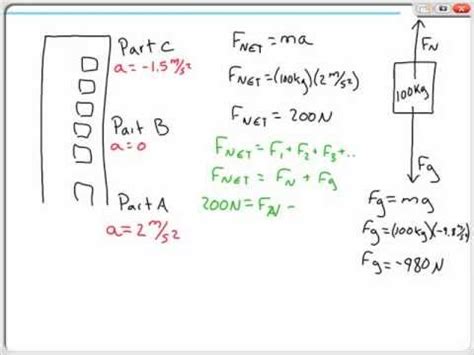 Part C
a = -1.5 m/s2
Part B
a = 0
Part A
a = 2 m/s2
FNET = ma
FNET = (100kg)(2 m/s2)
FNET = 200N
FNET = F1 + F2 + F3 + ..
FNET = FN + Fg
200N = FN -
FN
100kg
Fg
Fg = mg
Fg = (100kg)(-9.8 m/s2)
Fg = -980N